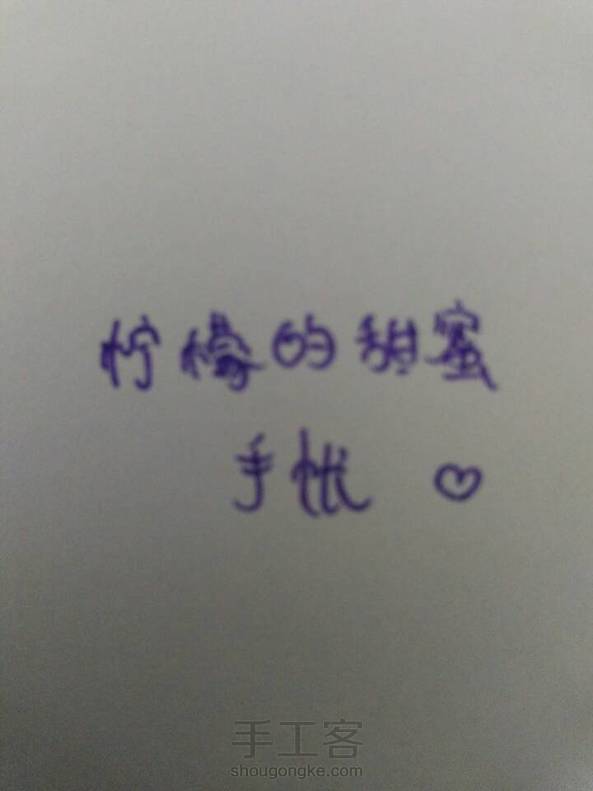 柠檬的甜蜜
手忧 ♡
手工客
shougongke.com